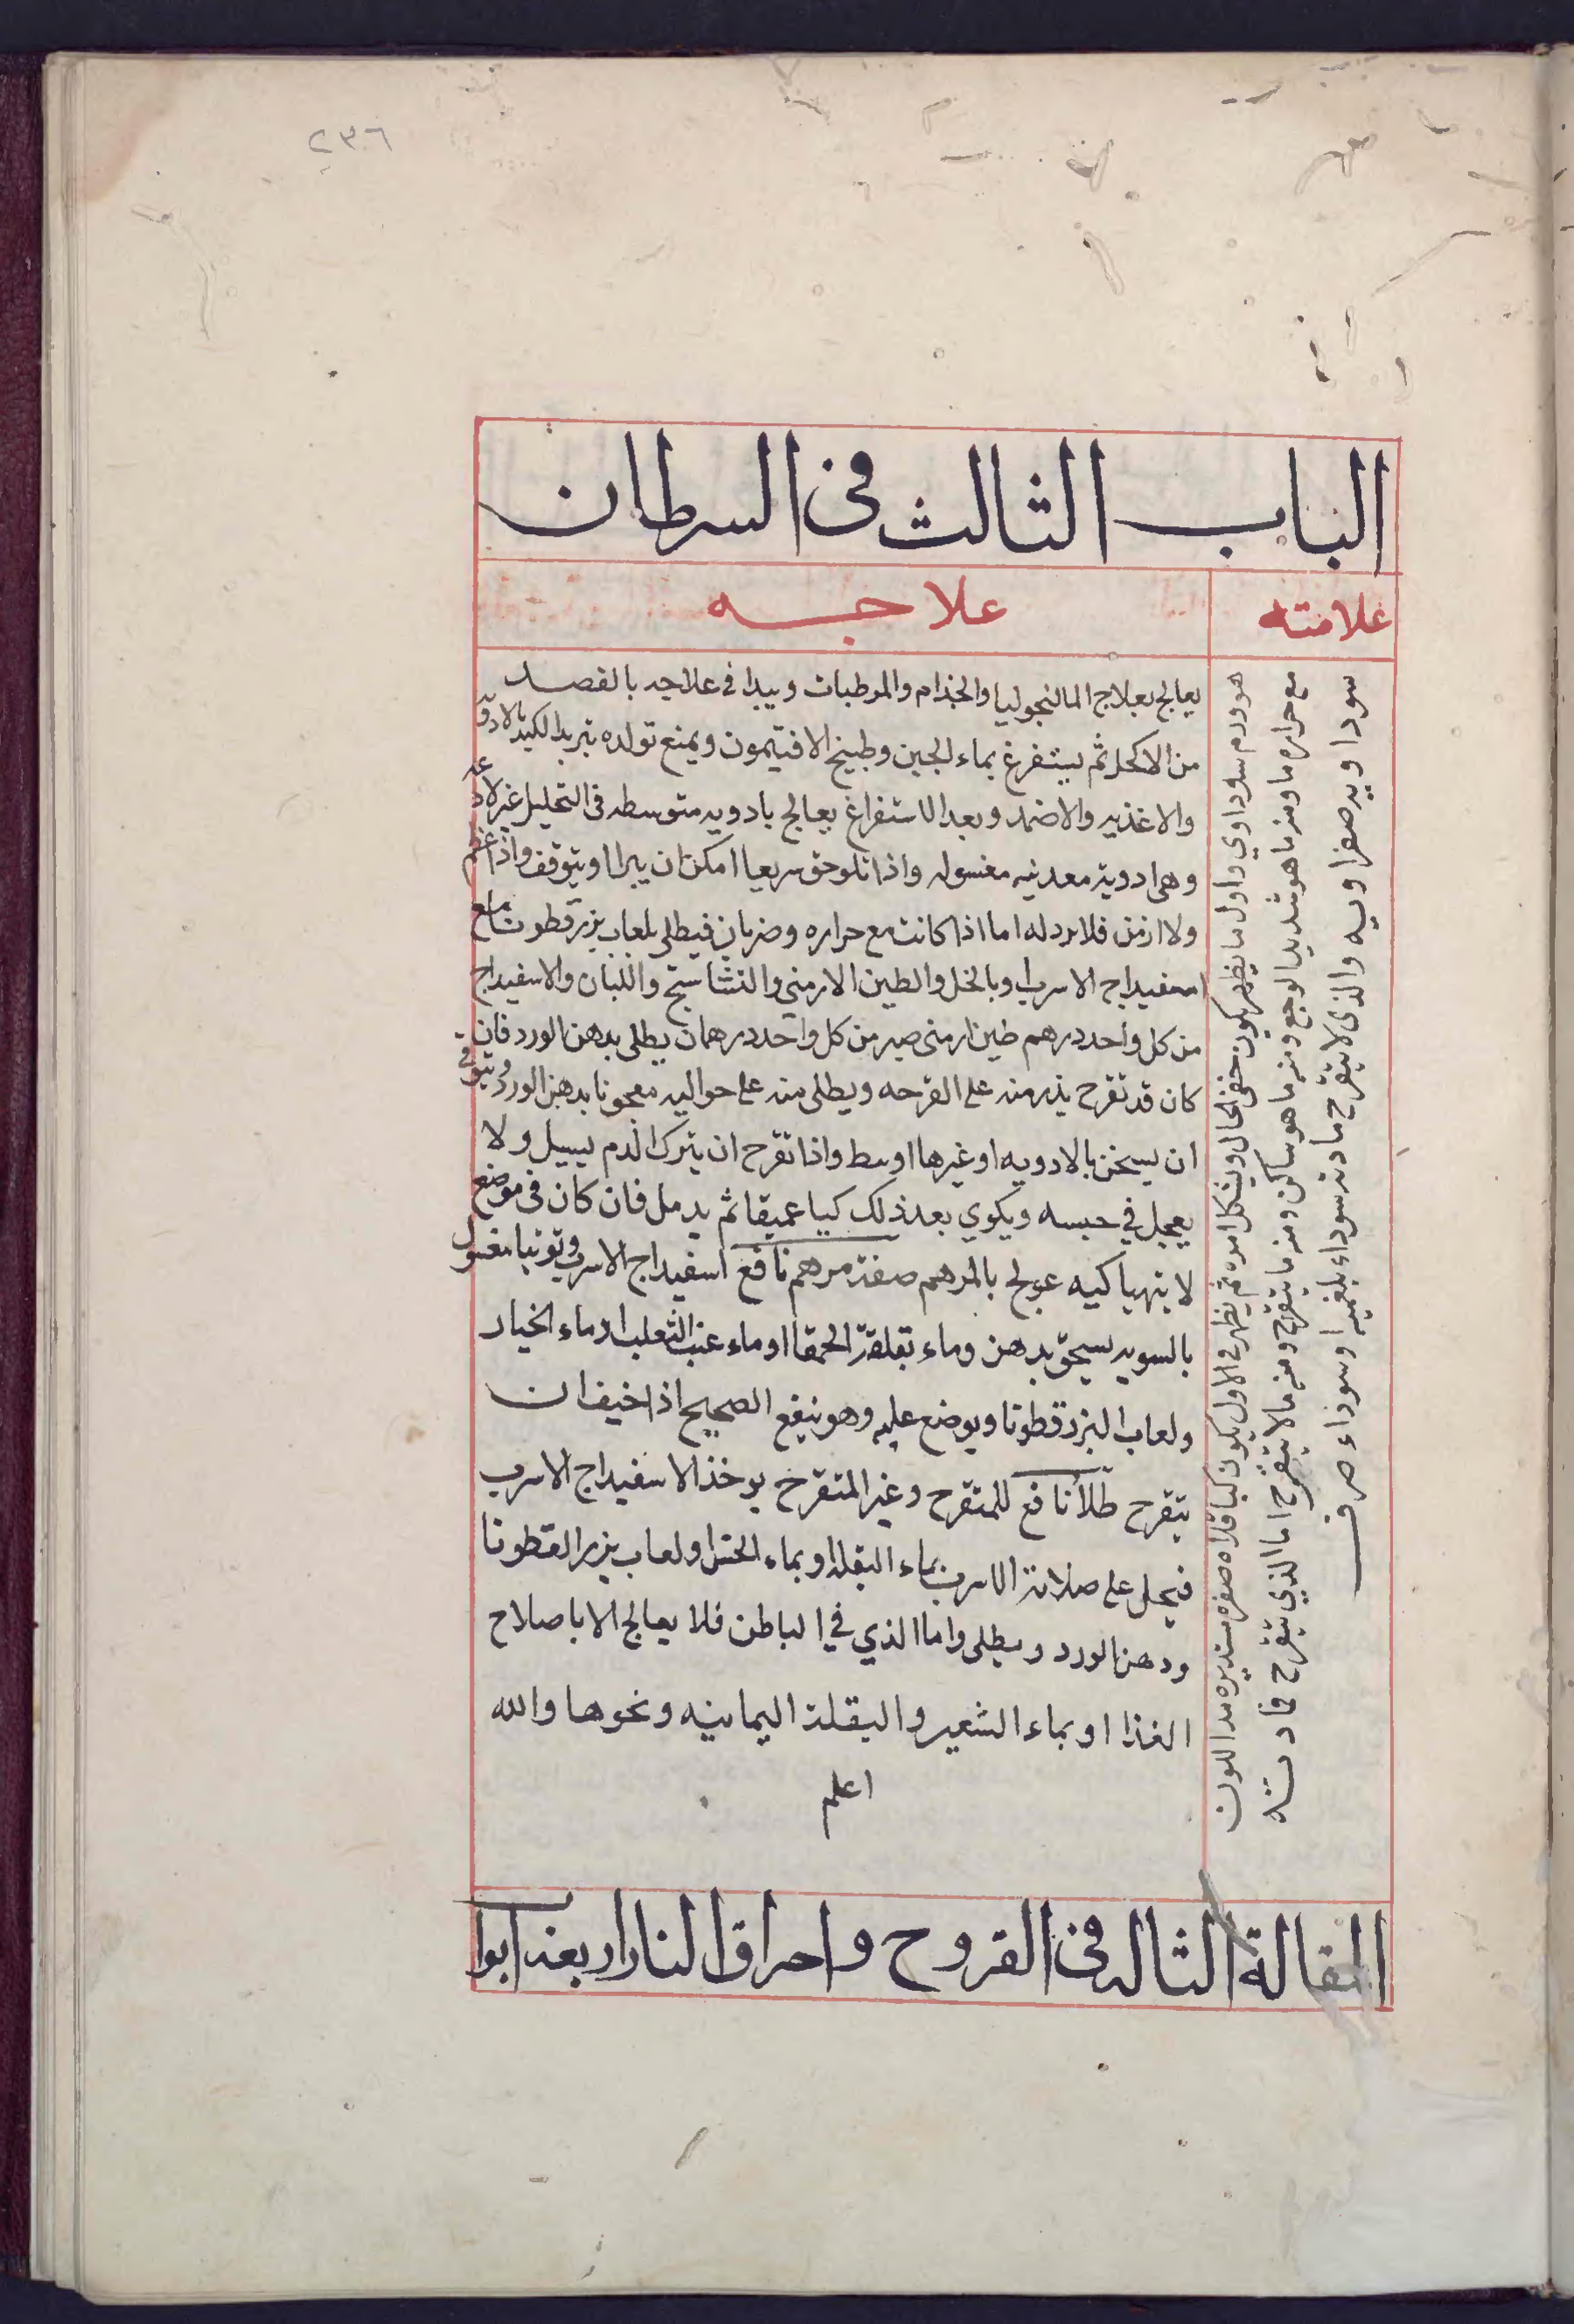 ٢٣٦
الباب الثالث في السرطان
علامته
علاجه
هو ورم سوداوي واول ما يظهر يكون خفي الحال ويشكل امره ثم يظهر في الاول يكون كباقلاه صغره مستديره مد اللون
مع حراره ما ومنه ما هو شديد الوجع ومنه ما هو ساكن ومنه ما يتقرح ومنه ما لا يتقرح اما الذي يتقرح فمادته
سوداويه صفراويه والذي لا يتقرح مادته سوداء بلغميه او سوداء صرف
يعالج بعلاج المالنجوليا والجذام والمرطبات ويبدا في علاجه بالفصد
من الاكحل ثم يستفرغ بماء الجبن وطبيخ الافتيمون ويمنع تولده بتبريد الكبد بالادويه
والاغذيه والاضمد وبعد الاستفراغ يعالج بادويه متوسطه في التحليل غير لاذعه
وهي ادوية معدنيه مغسوله واذا تلوحق سريعا امكن ان يبرا او يتوقف واذا عظم
ولا ازمن فلا برد له اما اذا كانت مع حراره وضربان فيطلى بلعاب بزرقطونا مع
اسفيداج الاسرب وبالخل والطين الارمني والنشاستج واللبان والاسفيداج
من كل واحد درهم طين ارمني صبر من كل واحد درهمان يطلى بدهن الورد فان
كان قد تقرح يذر منه على القرحه ويطلى منه على حواليه معجونا بدهن الورد ويتوقى
ان يسخن بالادويه او غيرها اوسط واذا تقرح ان يترك الدم يسيل ولا
يعجل في حبسه ويكوي بعد ذلك كيا عميقا ثم يدمل فان كان في موضع
لا يتهيا كيه عولج بالمرهم صفة مرهم نافع اسفيداج الاسرب وتوتيا مغسول
بالسويه يسحق بدهن وماء بقلة الحمقا او ماء عنب الثعلب او ماء الخيار
ولعاب البزرقطونا ويوضع عليه وهو ينفع الصحيح اذا خيف ان
يتقرح طلأ نافع للمتقرح وغير المتقرح يوخذ الاسفيداج الاسرب
فيحل على صلاية الاسرب بماء البقله او بماء الخس او لعاب بزر القطونا
ودهن الورد ويطلى واما الذي في الباطن فلا يعالج الا باصلاح
الغذا او بماء الشعير والبقلة اليمانيه ونحوها والله
اعلم
المقالة الثالثه في القروح واحراق النار اربعة ابواب